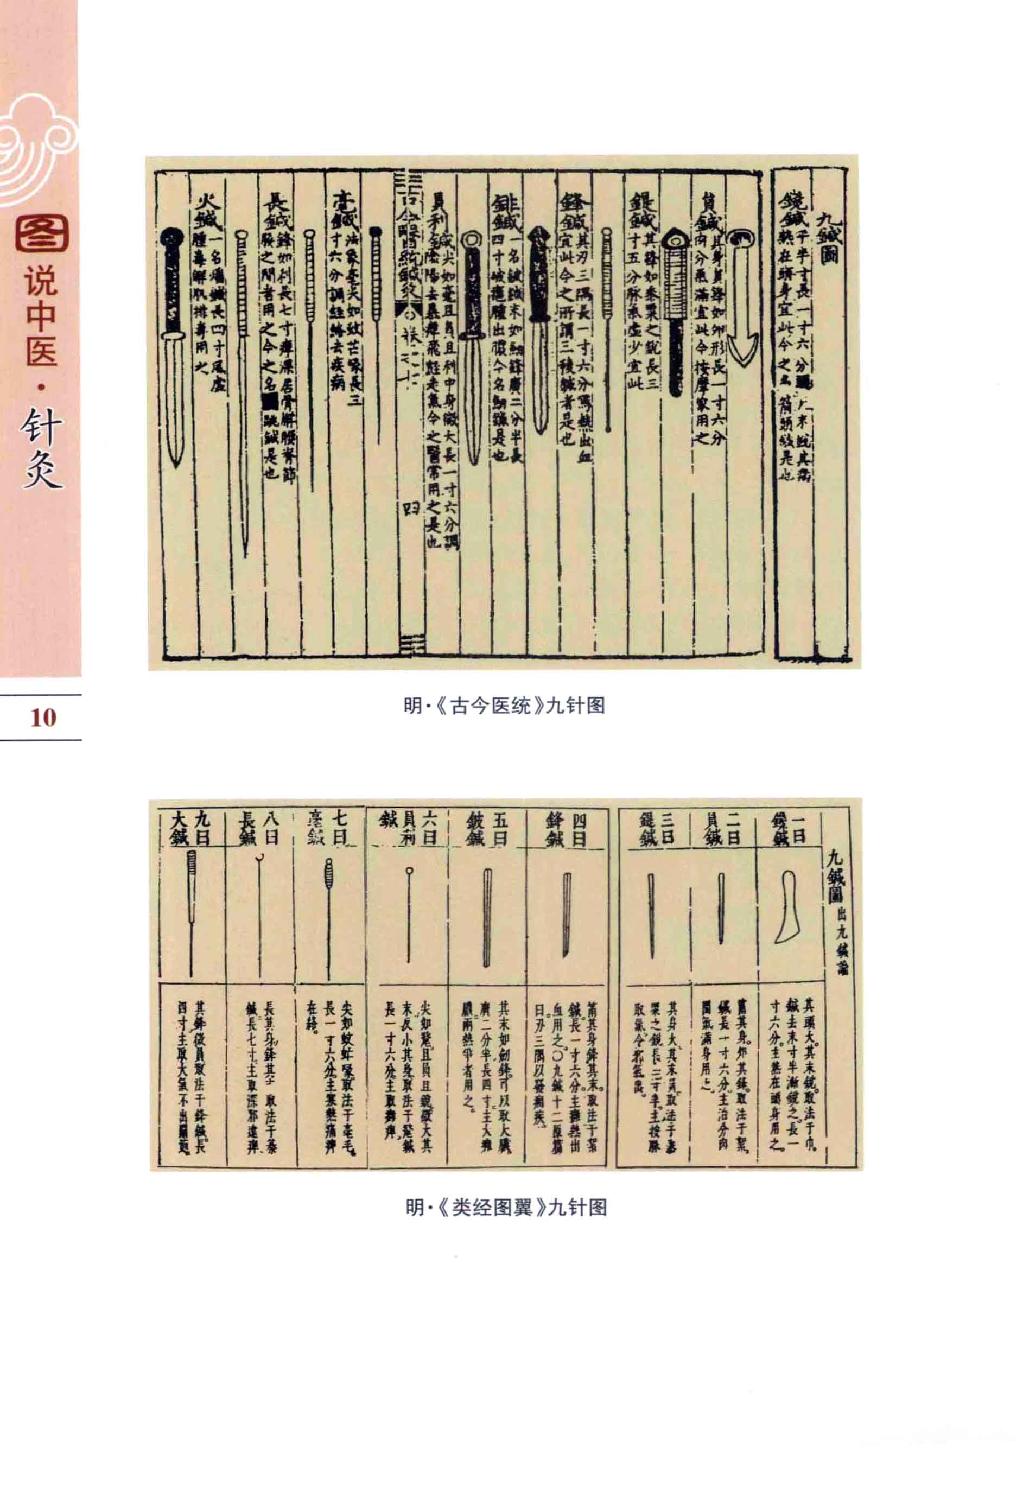 图说中医·针灸
10
九鍼圖
鑱鍼平半寸長一寸六分
熱在頭身宜此今之名箭頭鍼是也
員鍼其身員鋒如卵形長一寸六分
肉分氣滿宜此今按摩家用之
鍉鍼其鋒如黍粟之銳長三
寸五分脉氣虛少宜此
鋒鍼其刃三隅長一寸六分
宜此今之所謂三稜鍼者是也
鈹鍼一名
四寸破癰腫出膿今名
員利鍼尖如氂且員且利中身微大長一寸六分調
陰陽去暴痺飛經走氣今之醫常用之是也
古今醫統
四
毫鍼法象毫尖如蚊虻喙長三
寸六分調經絡去疾病
長鍼鋒如利長七寸痺深居骨解腰脊節
腠之間者用之今之名跳鍼是也
火鍼一名燔鍼長四寸
腫毒解肌排毒用之
明·《古今医统》九针图
九鍼圖出九鍼論
一曰鑱鍼
二曰員鍼
三曰鍉鍼
四曰鋒鍼
五曰鈹鍼
六曰員利鍼
七曰毫鍼
八曰長鍼
九曰大鍼
其頭大其末銳取法于巾
鍼去末寸半漸銳之長一
寸六分主熱在頭身用之
筩其身卵其鋒取法于絮
鍼長一寸六分主治分肉
間氣滿身用之
其身大其末員取法于黍
粟之銳長三寸半主按脉
取氣令邪氣出
筩其身鋒其末取法于絮
鍼長一寸六分主癰熱出
血用之〇九鍼十二原篇
曰刃三隅以發痼疾
其末如劍鋒可以取大膿
廣二分半長四寸主大癰
膿兩熱爭者用之
尖如氂且員且銳微大其
末反小其身取法于氂鍼
長一寸六分主取癰痺
尖如蚊虻喙取法于毫毛
長一寸六分主寒熱痛痺
在絡
長其身鋒其末取法于綦
鍼長七寸主取深邪遠痺
其鋒微員取法于鋒鍼長
四寸主取大氣不出關節
明·《类经图翼》九针图